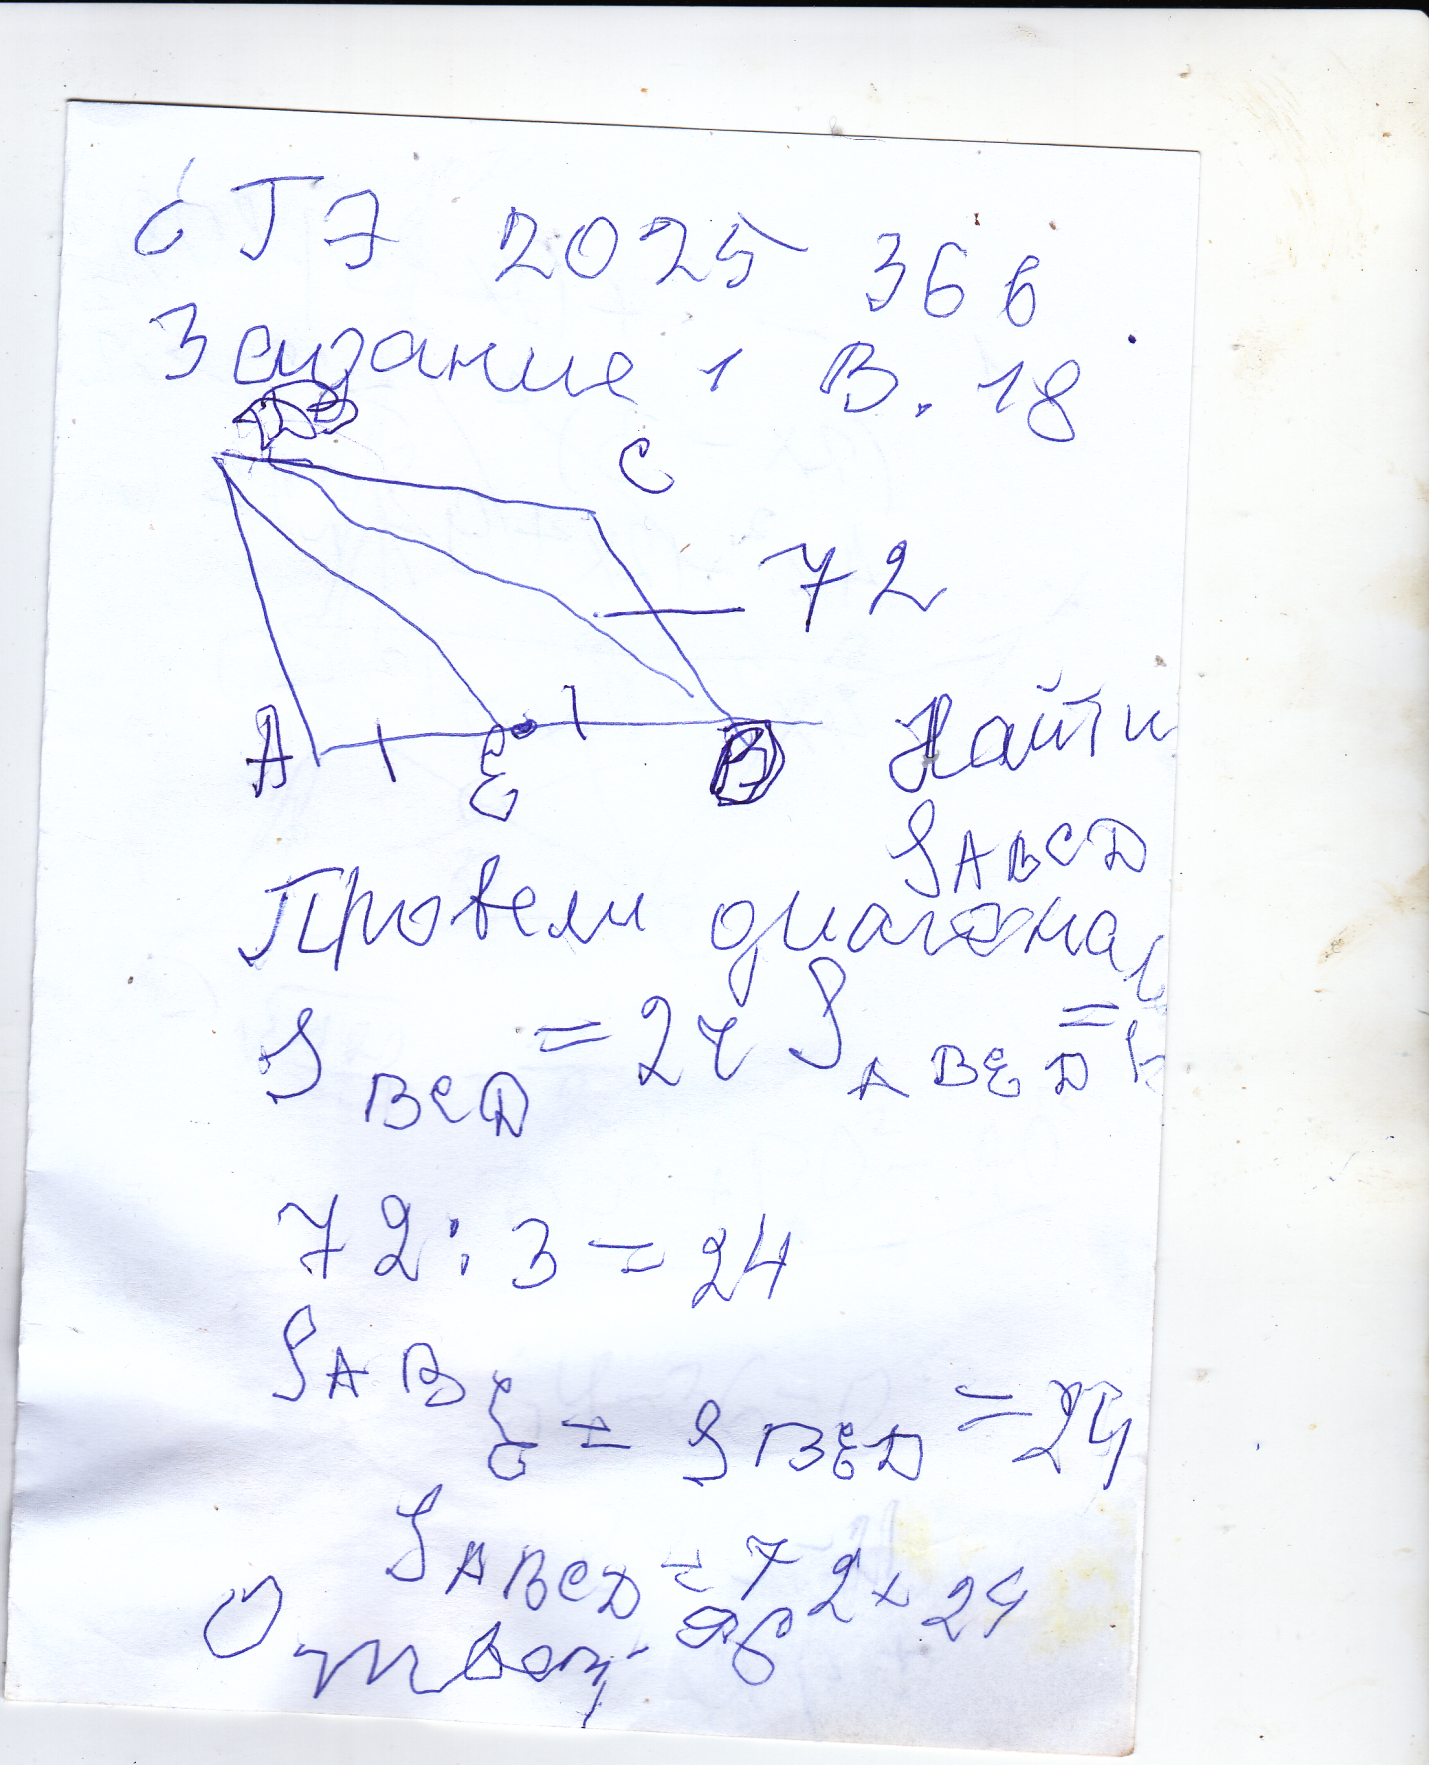 СТ7 2025 366
Задание 1 В. 18
C
72
A E B Найти
S ABCD
Провели диагонал
S BCD = 24 S ABED =
72 : 3 = 24
S ABE = S BED = 24
S ABCD = 72 + 24
Ответ 96